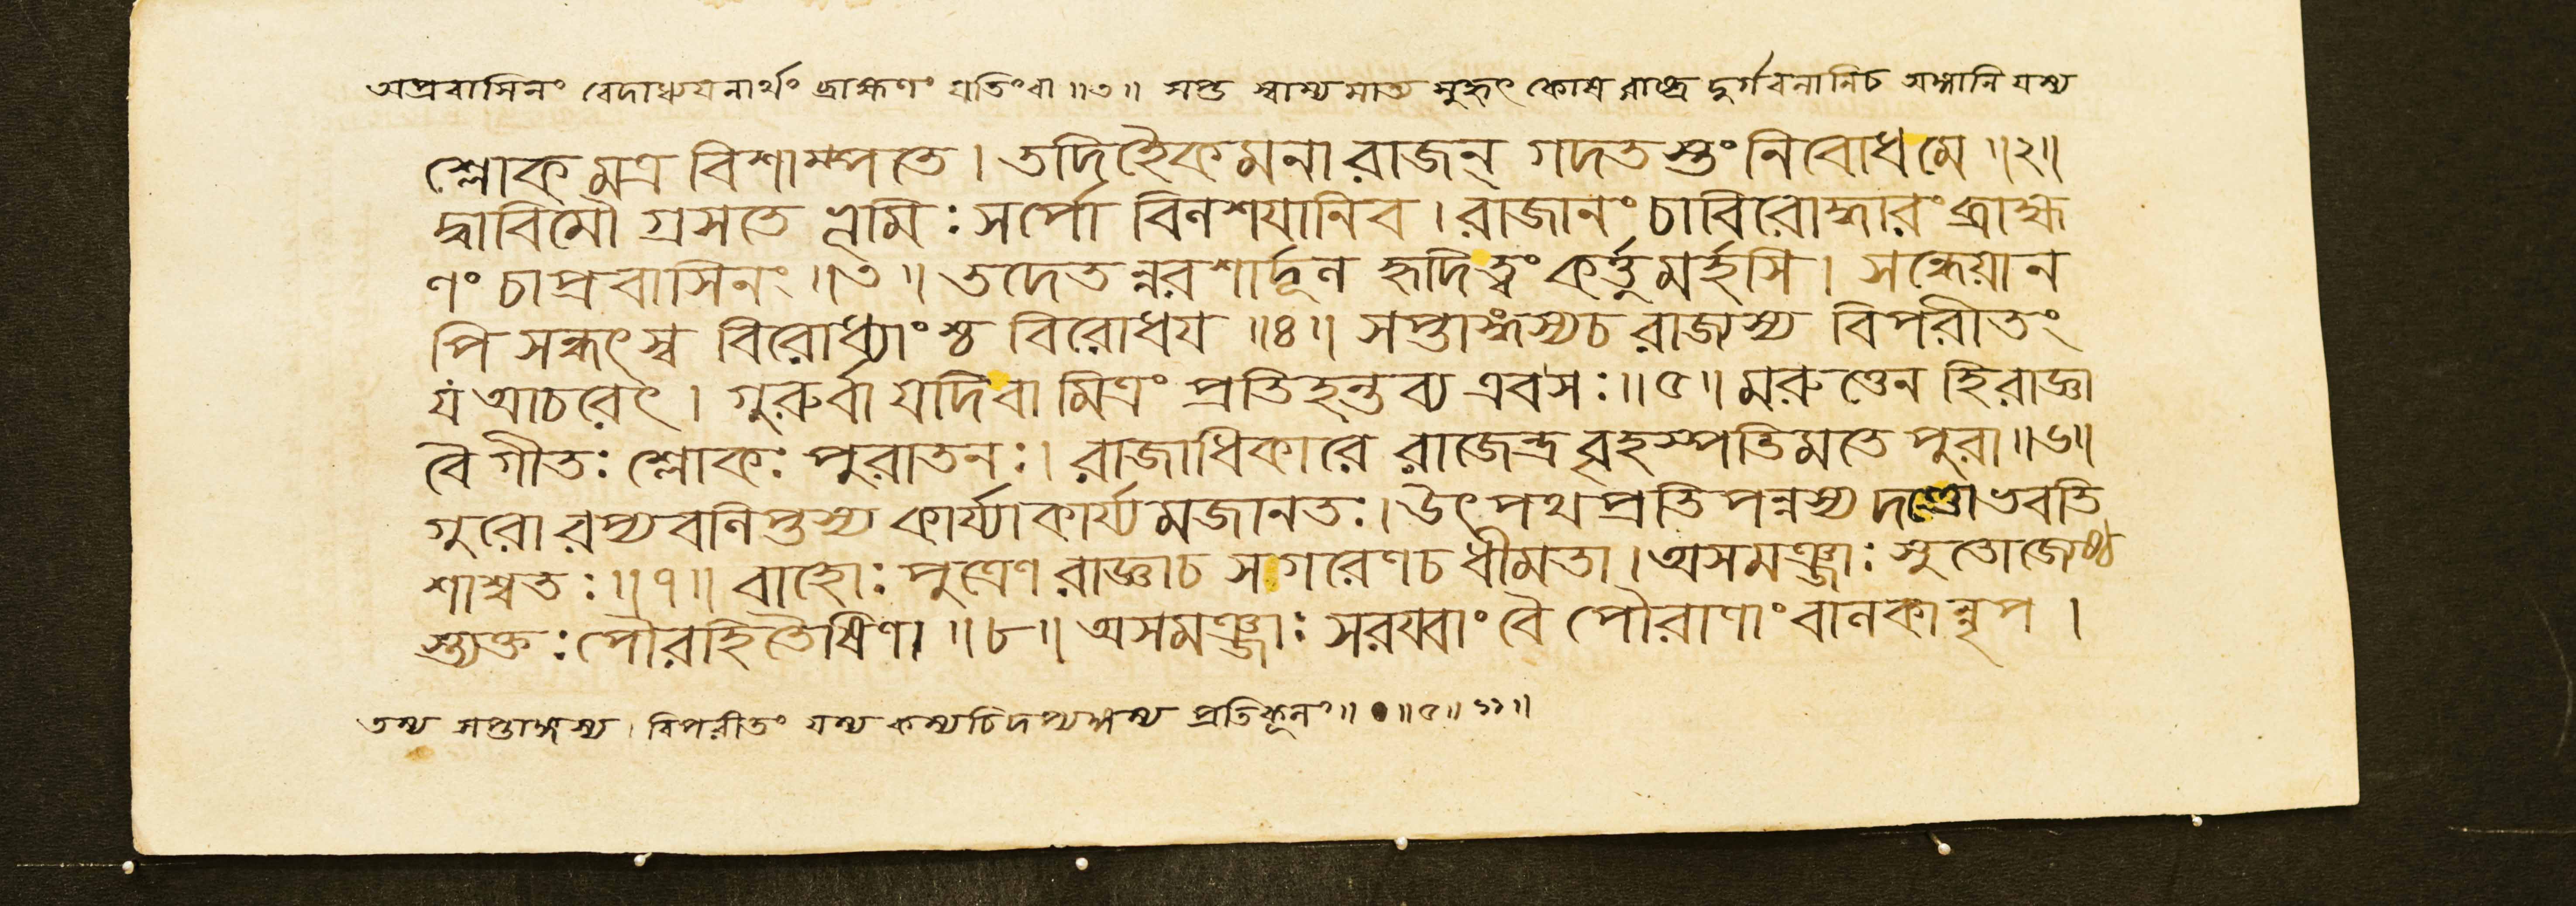 অপ্রবাসিনং বেদাধ্যয়নার্থং ব্রাহ্মণং যতিংবা ॥৩॥ সপ্ত স্বাম্যমাত্য সুহৃৎ কোশ রাষ্ট্র দুর্গবলানিচ অঙ্গানি যস্য
শ্লোকমত্র বিশাম্পতে । তদিহৈকমনা রাজন্ গদতস্তং নিবোধমে ॥২॥
দ্বাবিমৌ গ্রসতে ভূমিঃ সর্পো বিলশয়ানিব । রাজানং চাবিরোদ্ধারং ব্রাহ্ম
ণং চাপ্রবাসিনং ॥৩॥ তদেতন্নরশার্দূল হৃদিত্বং কর্ত্তুমর্হসি । সন্ধেয়ান
পি সন্ধৎস্ব বিরোধ্যাংশ্চ বিরোধয ॥৪॥ সপ্তাঙ্গস্যচ রাজ্যস্য বিপরীতং
য আচরেৎ । গুরুর্বা যদিবা মিত্রং প্রতিহন্তব্য এবসঃ ॥৫॥ মরুত্তেন হিরাজ্ঞা
বৈ গীতঃ শ্লোকঃ পুরাতনঃ । রাজাধিকারে রাজেন্দ্র বৃহস্পতিমতে পুরা ॥৬॥
গুরোরপ্যবলিপ্তস্য কার্য্যাকার্য্যমজানতঃ । উৎপথপ্রতিপন্নস্য দণ্ডোভবতি
শাশ্বতঃ ॥৭॥ বাহোঃ পুত্রেণ রাজ্ঞাচ সগরেণচ ধীমতা । অসমঞ্জাঃ সুতোজেষ্ঠ
স্ত্যক্তঃ পৌরহিতৈষিণা ॥৮॥ অসমঞ্জাঃ সরয্বাং বৈ পৌরাণাং বালকান্নৃপ ।
তস্য সপ্তাঙ্গস্য । বিপরীতং যস্য কস্যচিদপ্যঙ্গস্য প্রতিকূলং ॥ ॥৫॥১১॥